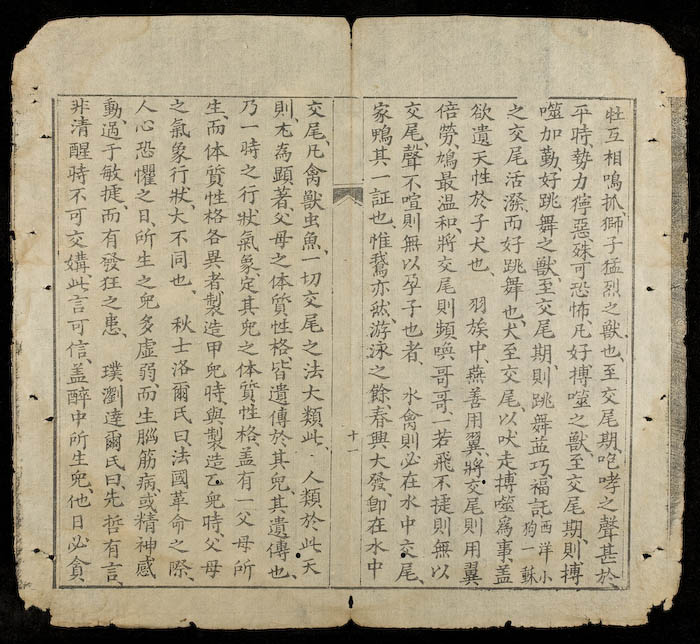 牡互相鳴抓、獅子猛烈之獸也、至交尾期、咆哮之聲甚於
平時、勢力獰惡、殊可恐怖、凡好搏噬之獸、至交尾期、則搏
噬加勤、好跳舞之獸、至交尾期、則跳舞益巧、福託西洋小狗一蘇
之交尾活潑、而好跳舞也、犬至交尾、以吠走搏噬爲事、蓋
欲遺天性於子犬也、羽族中、燕善用翼、將交尾則用翼
倍勞、鳩最温和、將交尾則頻喚哥哥、一若飛不捷則無以
交尾、聲不喧則無以孕子也者、水禽則必在水中交尾、
家鴨其一証也、惟鵞亦然、游泳之餘、春興大發、卽在水中
十一
交尾、凡禽獸虫魚、一切交尾之法大類此、人類於此天
則、尤為顯著、父母之体質性格、皆遺傳於其兒、其遺傳也、
乃一時之行狀氣象、定其兒之体質性格、蓋有一父母所
生、而体質性格各異者、製造甲兒時、與製造乙兒時、父母
之氣象行狀、大不同也、秋士洛爾氏曰、法國革命之際、
人心恐懼之日、所生之兒多虛弱、而生腦筋病、或精神感
動、過于敏㨗、而有發狂之患、璞瀏達爾氏曰、先哲有言、
非清醒時不可交媾、此言可信、蓋醉中所生兒、他日必貪